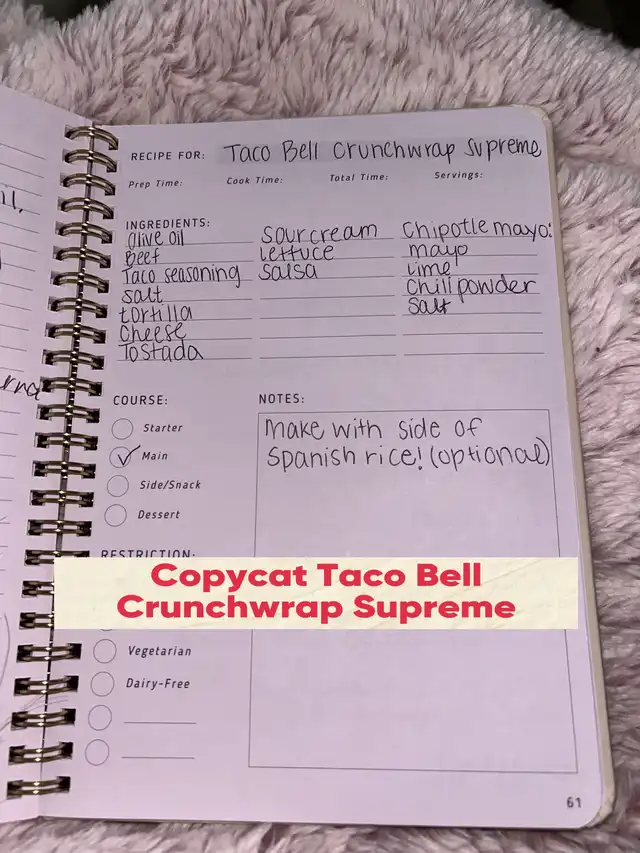 RECIPE FOR: Taco Bell Crunchwrap Supreme
Prep Time: Cook Time: Total Time: Servings:
INGREDIENTS:
Olive oil
Beef
Taco seasoning
salt
tortilla
Cheese
Tostada
sour cream
lettuce
salsa
Chipotle mayo:
mayo
lime
Chili powder
salt
COURSE:
Starter
Main
Side/Snack
Dessert
RESTRICTION:
Vegetarian
Dairy-Free
NOTES:
Make with side of
Spanish rice! (optional)
Copycat Taco Bell
Crunchwrap Supreme
61